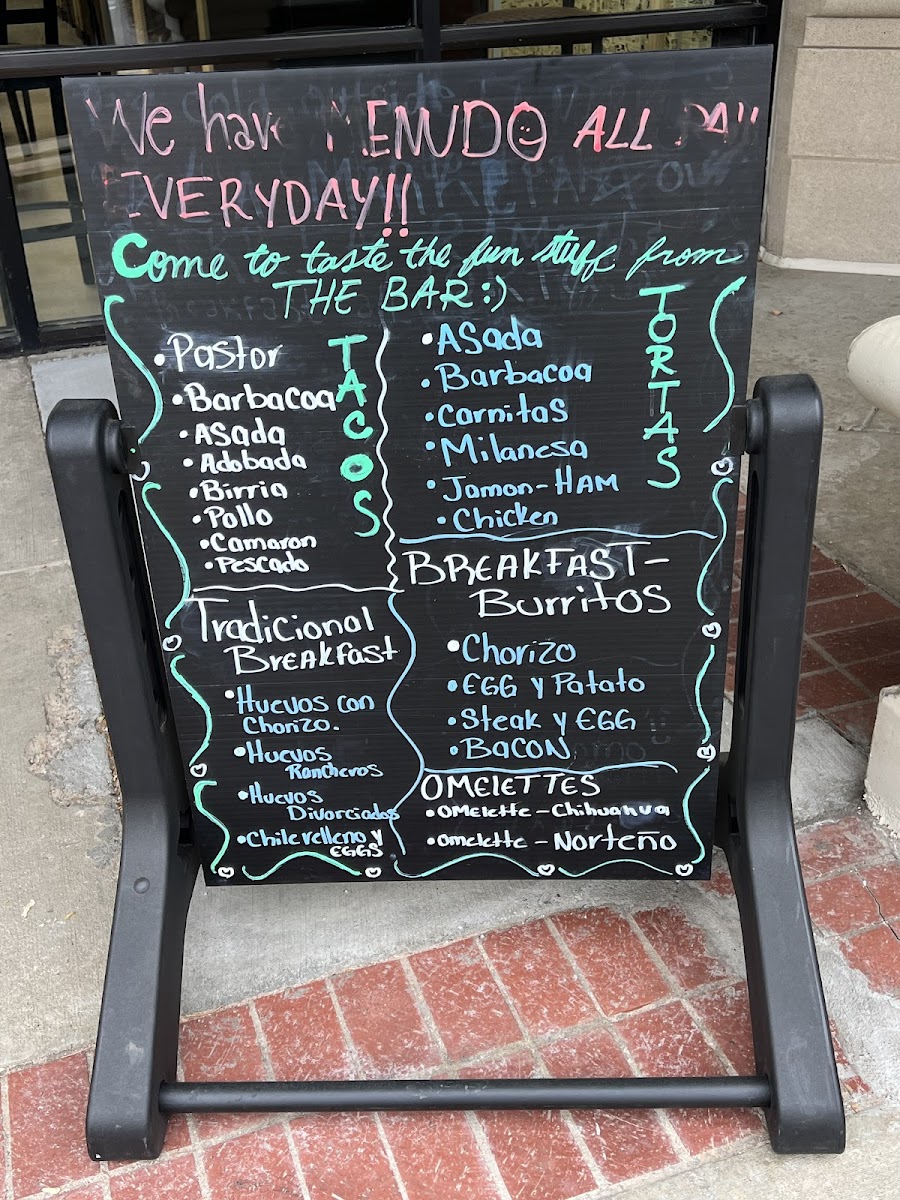 We have MENUDO ALL DAY
EVERYDAY!!
Come to taste the fun stuff from
THE BAR:)
TACOS
• Pastor
• Barbacoa
• Asada
• Adobada
• Birria
• Pollo
• Camaron
• Pescado
TORTAS
• Asada
• Barbacoa
• Carnitas
• Milanesa
• Jamon-HAM
• Chicken
Tradicional
Breakfast
• Huevos con
Chorizo.
• Huevos
Rancheros
• Huevos
Divorciados
• Chile relleno y
EGGS
BREAKFAST-
Burritos
• Chorizo
• EGG y Patato
• Steak y EGG
• BACON
OMElETTES
• OMelette-Chihuahua
• omelette-Norteño